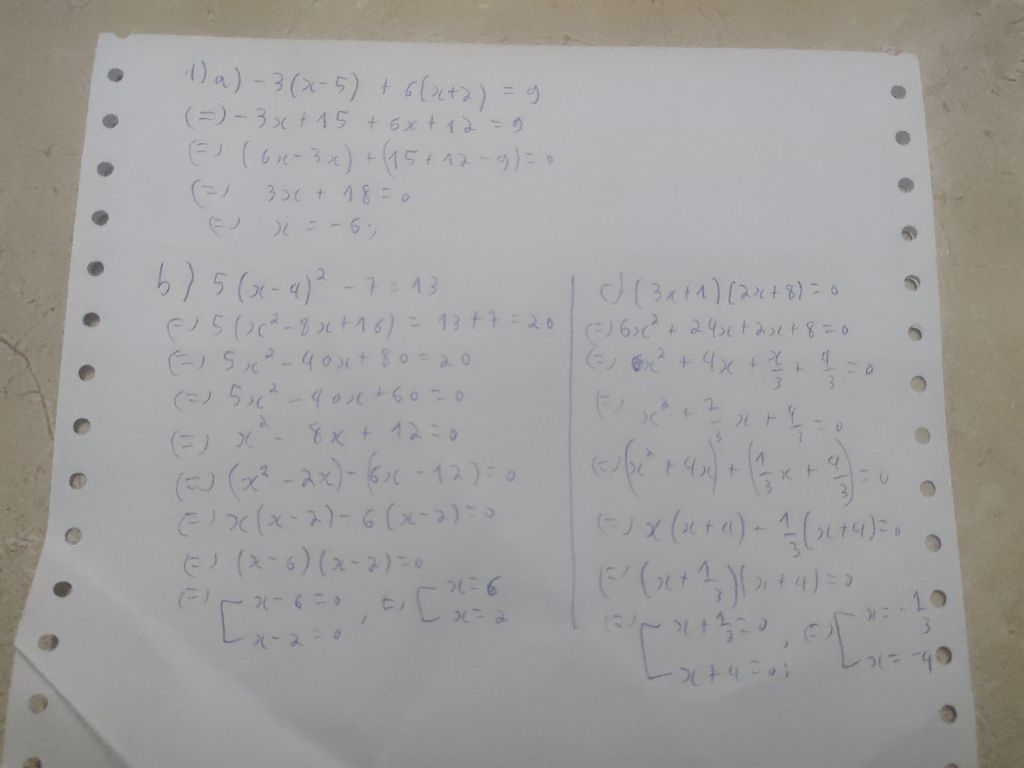 1) a) -3(x-5) + 6(x+2) = 9
(=) -3x+15 + 6x+12 = 9
(=) (6x-3x) + (15+12-9) = 0
(=) 3x + 18 = 0
(=) x = -6;
b) 5(x-4)² - 7 = 13
(=) 5(x²-8x+16) = 13+7 = 20
(=) 5x² - 40x + 80 = 20
(=) 5x² - 40x + 60 = 0
(=) x² - 8x + 12 = 0
(=) (x² - 2x) - (6x - 12) = 0
(=) x(x-2) - 6(x-2) = 0
(=) (x-6)(x-2) = 0
(=) [ x-6 = 0 ; (=) [ x = 6
x-2 = 0 x = 2
c) (3x+1)(2x+8) = 0
(=) 6x² + 24x + 2x + 8 = 0
(=) x² + 4x + x/3 + 4/3 = 0
(=) x² + 7/3 x + 4/3 = 0
(=) (x² + 4x) + (1/3 x + 4/3) = 0
(=) x(x+4) + 1/3(x+4) = 0
(=) (x + 1/3)(x+4) = 0
(=) [ x + 1/3 = 0 ; (=) [ x = -1/3
x+4 = 0; x = -4